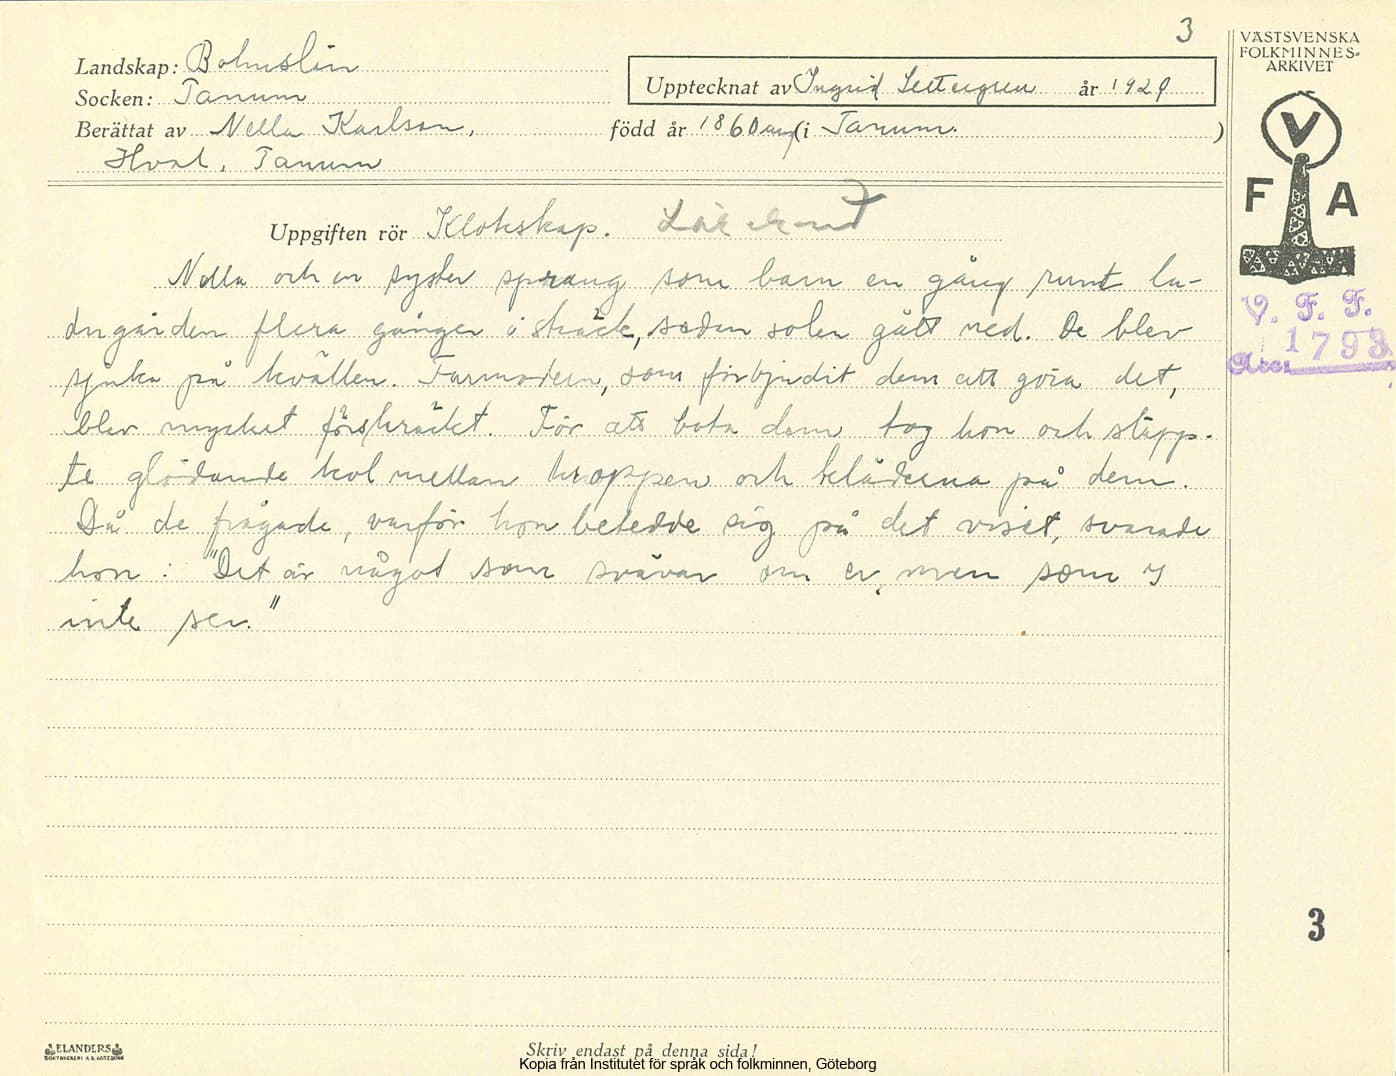 3
VÄSTSVENSKA
FOLKMINNES-
ARKIVET
Landskap: Bohuslän
Socken: Tanum
Upptecknat av Ingrid Settergren år 1929
Berättat av Nella Karlson, född år 1860 (i Tanum. )
Hval, Tanum
V
F A
Uppgiften rör Klokskap.
V. F. F.
1793
Nella och en syster sprang som barn en gång runt la-
dngården flera gånger i sträck, sedan solen gått ned. De blev
sjuka på kvällen. Farmodern, som förbjudit dem att göra det,
blev mycket förskräckt. För att bota dem tog hon och släpp-
te glödande kol mellan kroppen och kläderna på dem.
Då de frågade, varför hon betedde sig på det viset, svarade
hon: "Det är något som svävar om er, men som I
inte ser."
3
ELANDERS
BOKTRYCKERI A.B. GÖTEBORG
Skriv endast på denna sida!
Kopia från Institutet för språk och folkminnen, Göteborg